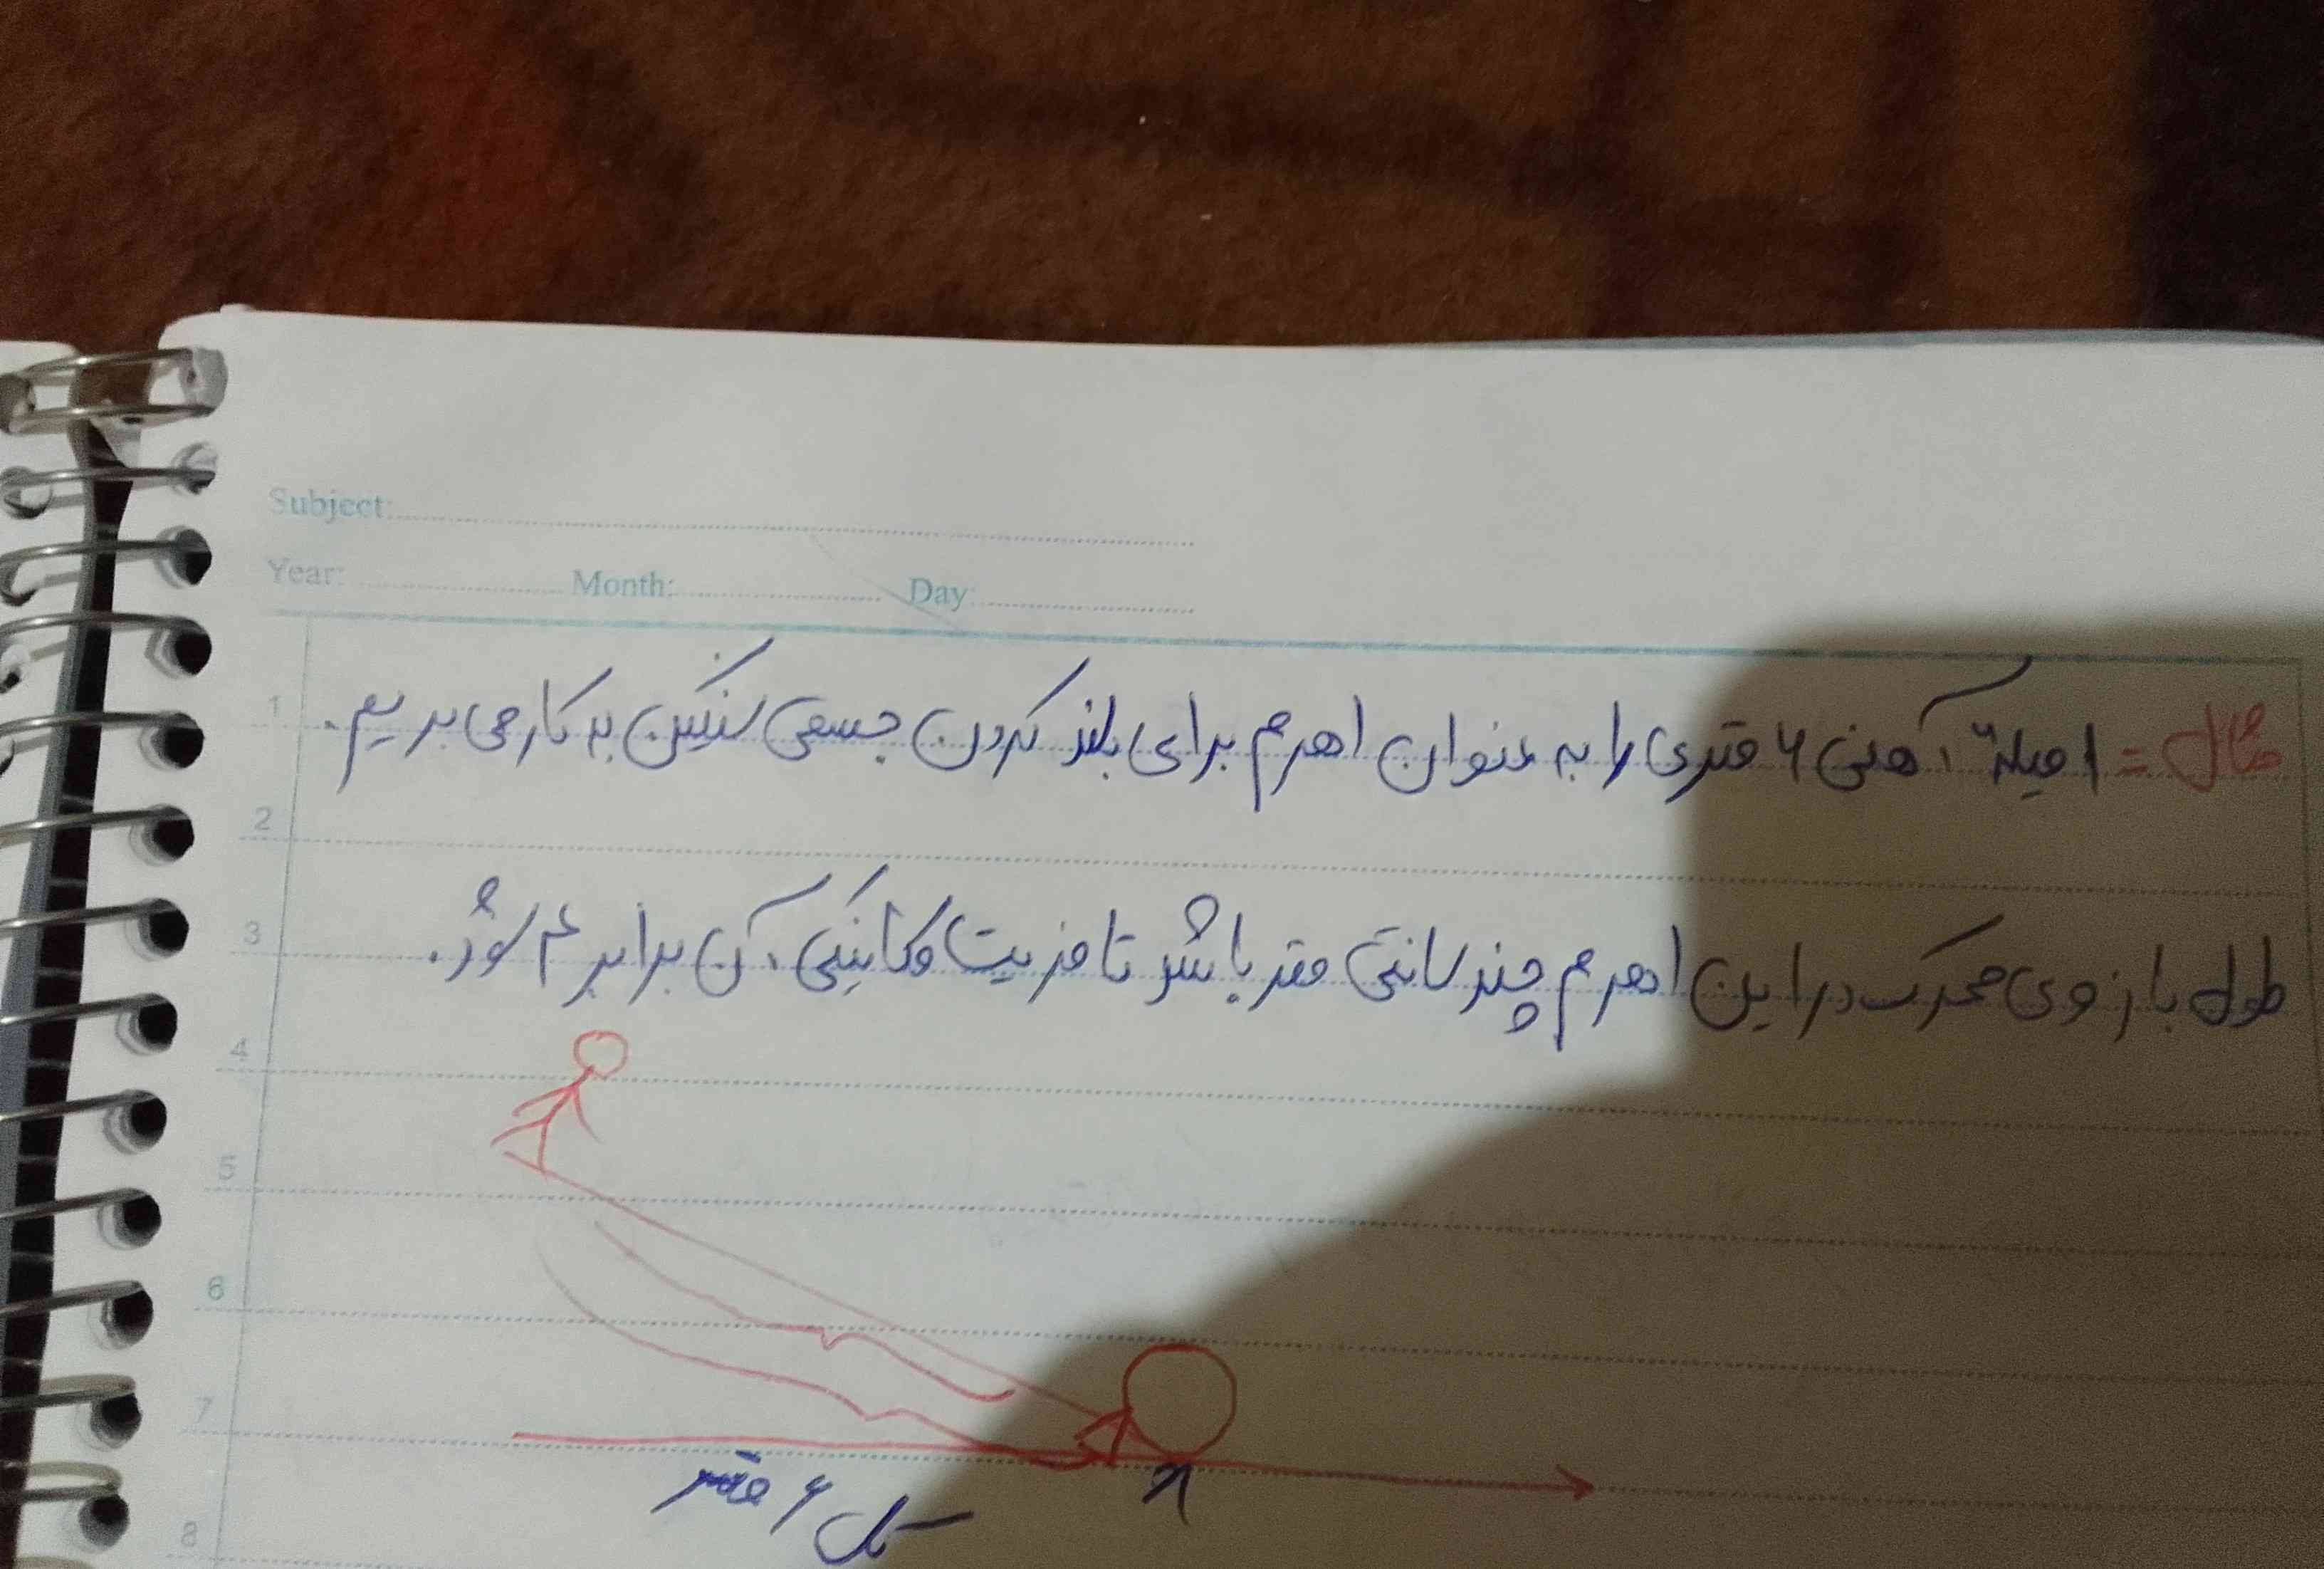 Subject:
Year: Month: Day:
مثال = ۱ میلهٔ آهنی ۶ متری را به عنوان اهرم برای بلند کردن جسمی سنگین به کار می بریم.
طول بازوی محرک در این اهرم چند سانتی متر باشد تا مزیت مکانیکی آن برابر ۴ شود.
کل ۶ متر
1
2
3
4
5
6
7
8